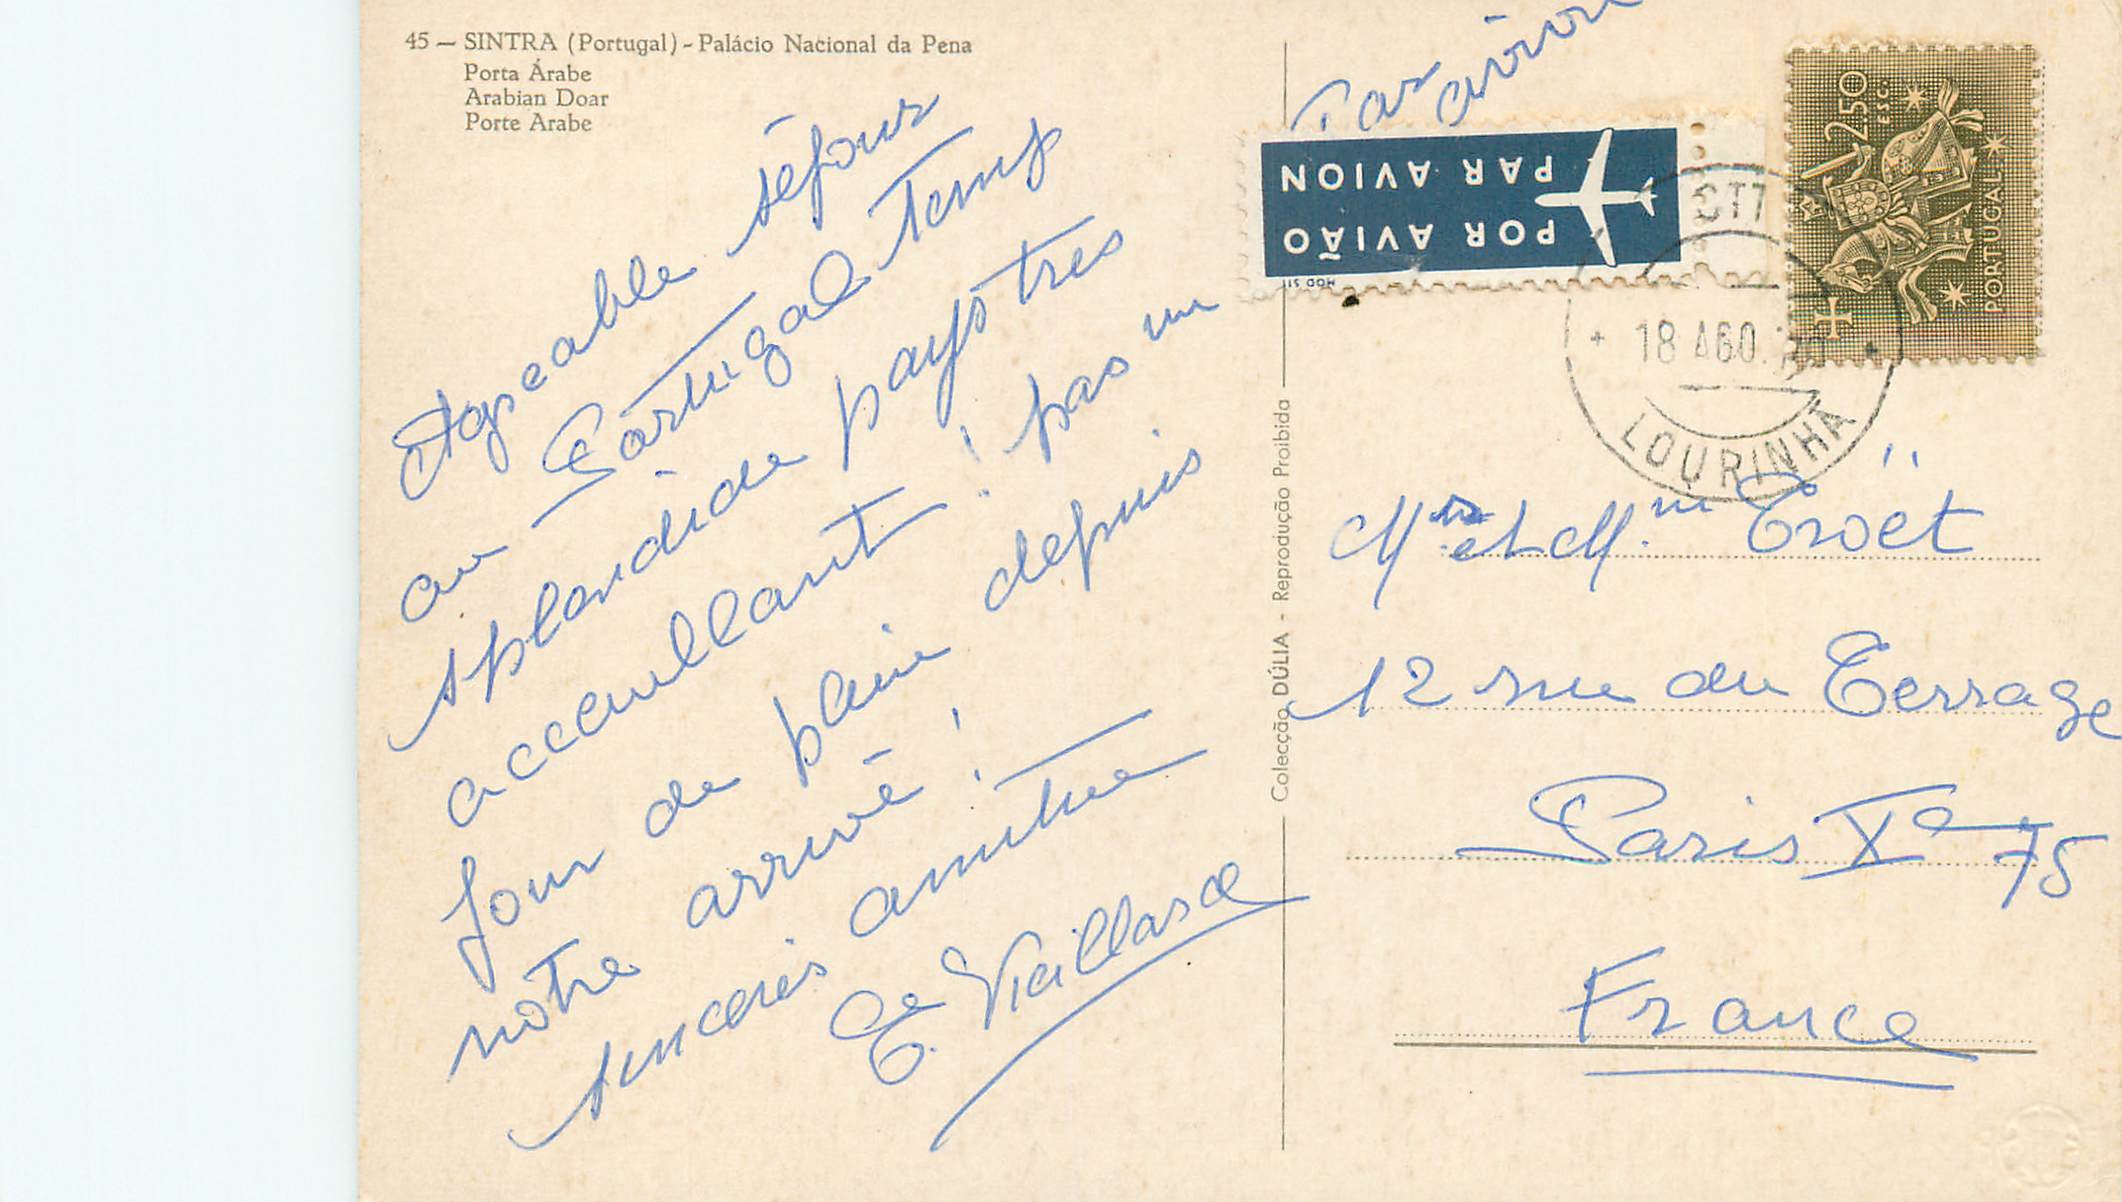 45 – SINTRA (Portugal) - Palácio Nacional da Pena
Porta Árabe
Arabian Doar
Porte Arabe
Agreable séjour
au Portugal Temp
splendide pays tres
accueillant ! pas un
jour de pluie depuis
nôtre arrivé !
sinceres amitié
E. Vieillard
Colecção DÚLIA - Reprodução Proibida
Par avion
PAR AVION
POR AVIÃO
2$50 ESC.
PORTUGAL
CTT
18 AGO.
LOURINHÃ
Mr et Mme Troët
12 rue du Terrage
Paris Xe 75
France